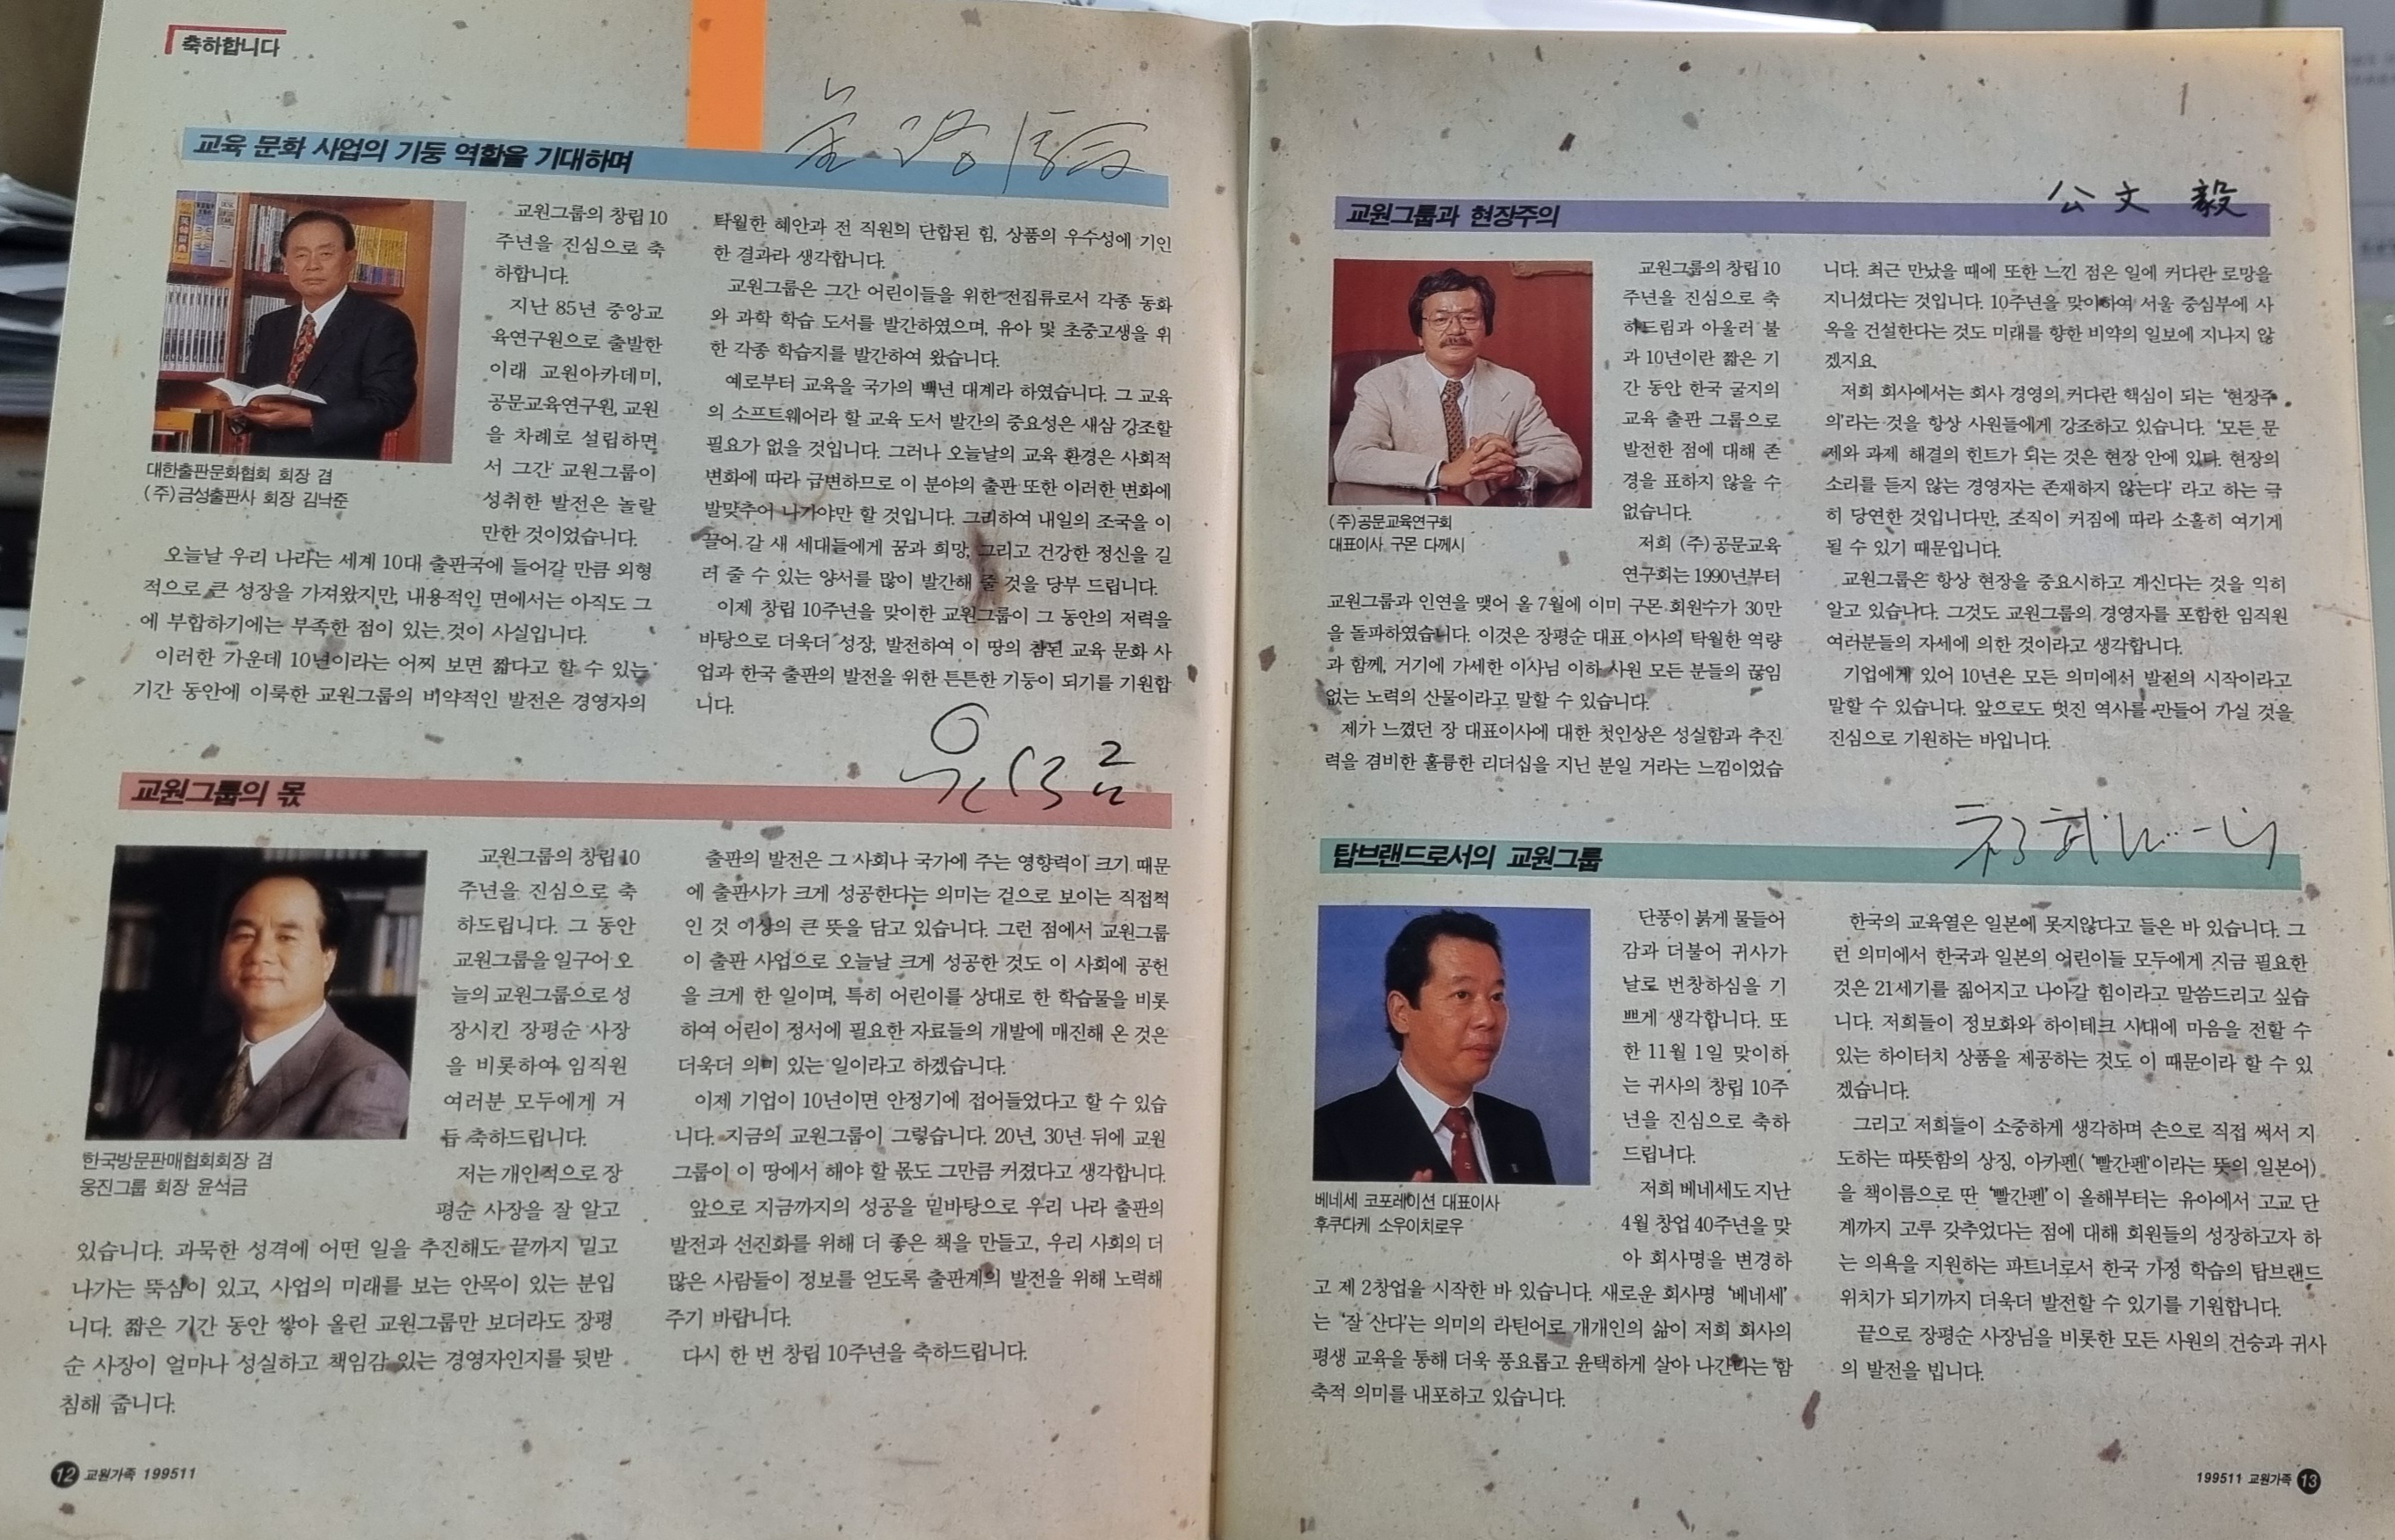 축하합니다
교육 문화 사업의 기둥 역할을 기대하며
대한출판문화협회 회장 겸
(주)금성출판사 회장 김낙준
교원그룹의 창립 10
주년을 진심으로 축
하합니다.
지난 85년 중앙교
육연구원으로 출발한
이래 교원아카데미,
공문교육연구원, 교원
을 차례로 설립하면
서 그간 교원그룹이
성취한 발전은 놀랄
만한 것이었습니다.
오늘날 우리 나라는 세계 10대 출판국에 들어갈 만큼 외형
적으로 큰 성장을 가져왔지만, 내용적인 면에서는 아직도 그
에 부합하기에는 부족한 점이 있는 것이 사실입니다.
이러한 가운데 10년이라는 어찌 보면 짧다고 할 수 있는
기간 동안에 이룩한 교원그룹의 비약적인 발전은 경영자의
탁월한 혜안과 전 직원의 단합된 힘, 상품의 우수성에 기인
한 결과라 생각합니다.
교원그룹은 그간 어린이들을 위한 전집류로서 각종 동화
와 과학 학습 도서를 발간하였으며, 유아 및 초중고생을 위
한 각종 학습지를 발간하여 왔습니다.
예로부터 교육을 국가의 백년 대계라 하였습니다. 그 교육
의 소프트웨어라 할 교육 도서 발간의 중요성은 새삼 강조할
필요가 없을 것입니다. 그러나 오늘날의 교육 환경은 사회적
변화에 따라 급변하므로 이 분야의 출판 또한 이러한 변화에
발맞추어 나가야만 할 것입니다. 그리하여 내일의 조국을 이
끌어 갈 새 세대들에게 꿈과 희망, 그리고 건강한 정신을 길
러 줄 수 있는 양서를 많이 발간해 줄 것을 당부 드립니다.
이제 창립 10주년을 맞이한 교원그룹이 그 동안의 저력을
바탕으로 더욱더 성장, 발전하여 이 땅의 참된 교육 문화 사
업과 한국 출판의 발전을 위한 튼튼한 기둥이 되기를 기원합
니다.
윤석금
교원그룹의 몫
한국방문판매협회회장 겸
웅진그룹 회장 윤석금
교원그룹의 창립 10
주년을 진심으로 축
하드립니다. 그 동안
교원그룹을 일구어 오
늘의 교원그룹으로 성
장시킨 장평순 사장
을 비롯하여 임직원
여러분 모두에게 거
듭 축하드립니다.
저는 개인적으로 장
평순 사장을 잘 알고
있습니다. 과묵한 성격에 어떤 일을 추진해도 끝까지 밀고
나가는 뚝심이 있고, 사업의 미래를 보는 안목이 있는 분입
니다. 짧은 기간 동안 쌓아 올린 교원그룹만 보더라도 장평
순 사장이 얼마나 성실하고 책임감 있는 경영자인지를 뒷받
침해 줍니다.
출판의 발전은 그 사회나 국가에 주는 영향력이 크기 때문
에 출판사가 크게 성공한다는 의미는 겉으로 보이는 직접적
인 것 이상의 큰 뜻을 담고 있습니다. 그런 점에서 교원그룹
이 출판 사업으로 오늘날 크게 성공한 것도 이 사회에 공헌
을 크게 한 일이며, 특히 어린이를 상대로 한 학습물을 비롯
하여 어린이 정서에 필요한 자료들의 개발에 매진해 온 것은
더욱더 의미 있는 일이라고 하겠습니다.
이제 기업이 10년이면 안정기에 접어들었다고 할 수 있습
니다. 지금의 교원그룹이 그렇습니다. 20년, 30년 뒤에 교원
그룹이 이 땅에서 해야 할 몫도 그만큼 커졌다고 생각합니다.
앞으로 지금까지의 성공을 밑바탕으로 우리 나라 출판의
발전과 선진화를 위해 더 좋은 책을 만들고, 우리 사회의 더
많은 사람들이 정보를 얻도록 출판계의 발전을 위해 노력해
주기 바랍니다.
다시 한 번 창립 10주년을 축하드립니다.
12 교원가족 199511
公文 毅
교원그룹과 현장주의
(주)공문교육연구회
대표이사 구몬 다께시
교원그룹의 창립 10
주년을 진심으로 축
하드림과 아울러 불
과 10년이란 짧은 기
간 동안 한국 굴지의
교육 출판 그룹으로
발전한 점에 대해 존
경을 표하지 않을 수
없습니다.
저희 (주)공문교육
연구회는 1990년부터
교원그룹과 인연을 맺어 올 7월에 이미 구몬 회원수가 30만
을 돌파하였습니다. 이것은 장평순 대표 이사의 탁월한 역량
과 함께, 거기에 가세한 이사님 이하 사원 모든 분들의 끊임
없는 노력의 산물이라고 말할 수 있습니다.
제가 느꼈던 장 대표이사에 대한 첫인상은 성실함과 추진
력을 겸비한 훌륭한 리더십을 지닌 분일 거라는 느낌이었습
니다. 최근 만났을 때에 또한 느낀 점은 일에 커다란 로망을
지니셨다는 것입니다. 10주년을 맞이하여 서울 중심부에 사
옥을 건설한다는 것도 미래를 향한 비약의 일보에 지나지 않
겠지요.
저희 회사에서는 회사 경영의 커다란 핵심이 되는 ‘현장주
의’라는 것을 항상 사원들에게 강조하고 있습니다. ‘모든 문
제와 과제 해결의 힌트가 되는 것은 현장 안에 있다. 현장의
소리를 듣지 않는 경영자는 존재하지 않는다’ 라고 하는 극
히 당연한 것입니다만, 조직이 커짐에 따라 소홀히 여기게
될 수 있기 때문입니다.
교원그룹은 항상 현장을 중요시하고 계신다는 것을 익히
알고 있습니다. 그것도 교원그룹의 경영자를 포함한 임직원
여러분들의 자세에 의한 것이라고 생각합니다.
기업에게 있어 10년은 모든 의미에서 발전의 시작이라고
말할 수 있습니다. 앞으로도 멋진 역사를 만들어 가실 것을
진심으로 기원하는 바입니다.
탑브랜드로서의 교원그룹
베네세 코포레이션 대표이사
후쿠다케 소우이치로우
단풍이 붉게 물들어
감과 더불어 귀사가
날로 번창하심을 기
쁘게 생각합니다. 또
한 11월 1일 맞이하
는 귀사의 창립 10주
년을 진심으로 축하
드립니다.
저희 베네세도 지난
4월 창업 40주년을 맞
아 회사명을 변경하
고 제 2창업을 시작한 바 있습니다. 새로운 회사명 ‘베네세’
는 ‘잘 산다’는 의미의 라틴어로 개개인의 삶이 저희 회사의
평생 교육을 통해 더욱 풍요롭고 윤택하게 살아 나간다는 함
축적 의미를 내포하고 있습니다.
한국의 교육열은 일본에 못지않다고 들은 바 있습니다. 그
런 의미에서 한국과 일본의 어린이들 모두에게 지금 필요한
것은 21세기를 짊어지고 나아갈 힘이라고 말씀드리고 싶습
니다. 저희들이 정보화와 하이테크 시대에 마음을 전할 수
있는 하이터치 상품을 제공하는 것도 이 때문이라 할 수 있
겠습니다.
그리고 저희들이 소중하게 생각하며 손으로 직접 써서 지
도하는 따뜻함의 상징, 아카펜( ‘빨간펜’이라는 뜻의 일본어)
을 책이름으로 딴 ‘빨간펜’이 올해부터는 유아에서 고교 단
계까지 고루 갖추었다는 점에 대해 회원들의 성장하고자 하
는 의욕을 지원하는 파트너로서 한국 가정 학습의 탑브랜드
위치가 되기까지 더욱더 발전할 수 있기를 기원합니다.
끝으로 장평순 사장님을 비롯한 모든 사원의 건승과 귀사
의 발전을 빕니다.
199511 교원가족 13